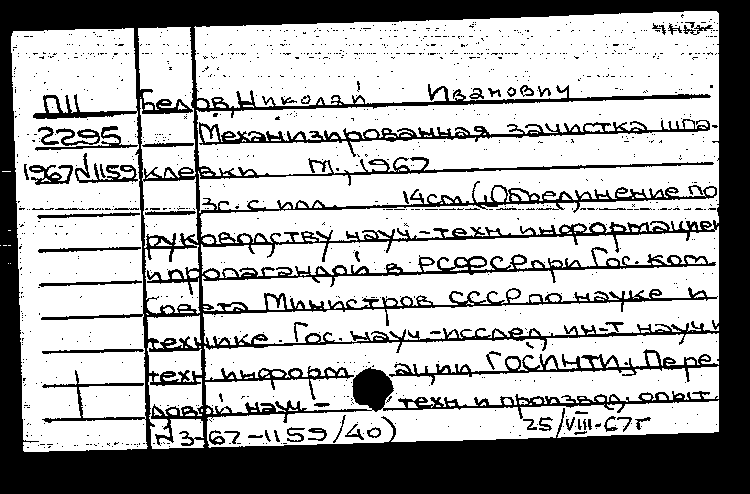 П11 Белов, Николай Иванович
2295 Механизированная зачистка шпа-
1967 N1159 клевки. М., 1967
3с. с илл. 14см. (Объединение по
руководству науч.-техн. информацией
и пропагандой в РСФСР при Гос. ком.
Совета Министров СССР по науке и
технике. Гос. науч.-исслед. ин-т науч. и
техн. информации ГОСИНТИ; Пере-
довой науч.- техн. и производ. опыт
N3-67-1159/40) 25/VIII-67г